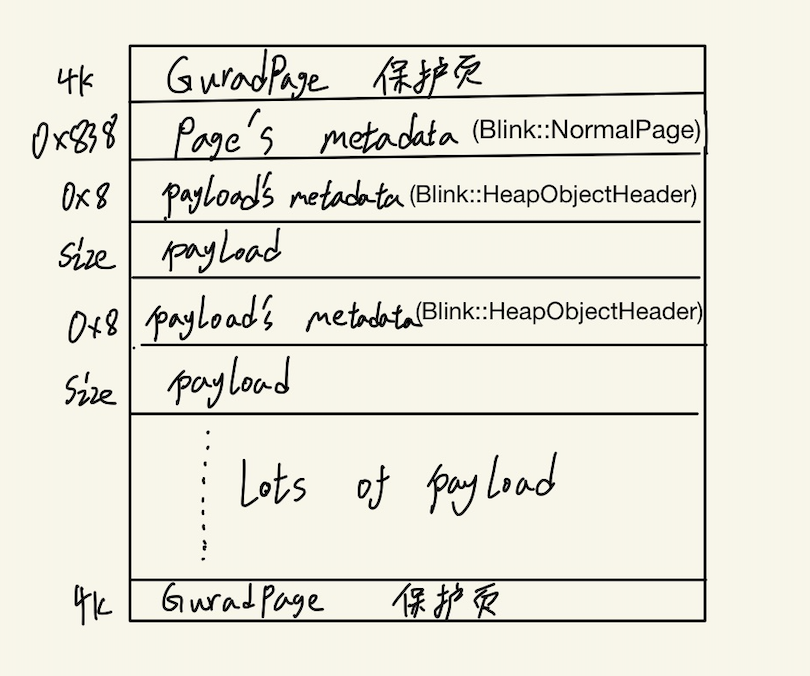 4k GuradPage 保护页
0x838 Page's metadata (Blink::NormalPage)
0x8 payload's metadata (Blink::HeapObjectHeader)
Size payload
0x8 payload's metadata (Blink::HeapObjectHeader)
Size payload
Lots of payload
4k GuradPage 保护页